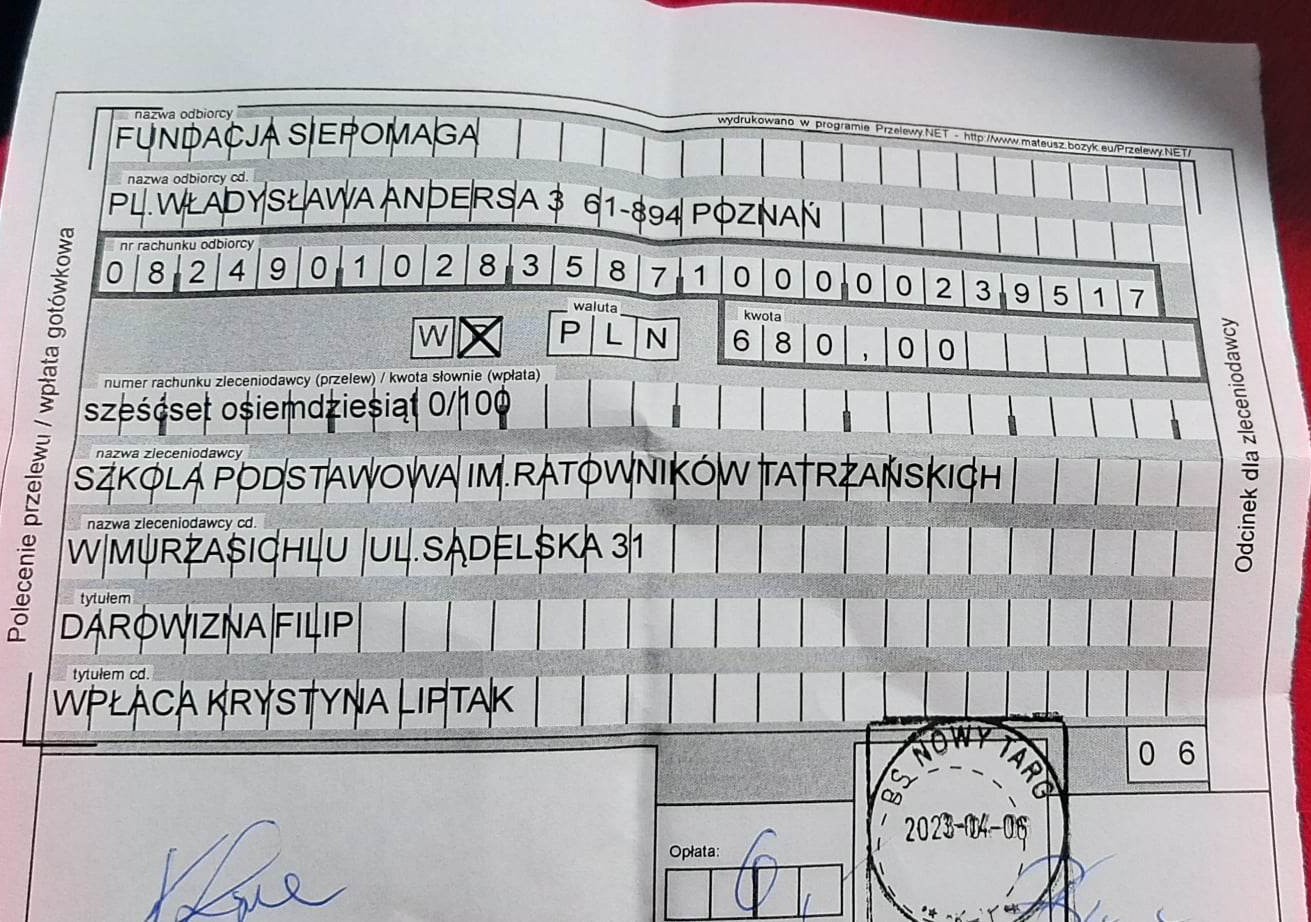 nazwa odbiorcy
wydrukowano w programie Przelewy.NET - http://www.mateusz.bozyk.eu/Przelewy.NET/
FUNDACJA SIEPOMAGA
nazwa odbiorcy cd.
PL.WŁADYSŁAWA ANDERSA 3 61-894 POZNAŃ
nr rachunku odbiorcy
08249010283587100000239517
waluta
kwota
W PLN 680,00
numer rachunku zleceniodawcy (przelew) / kwota słownie (wpłata)
sześćset osiemdziesiąt 0/100
nazwa zleceniodawcy
SZKOLA PODSTAWOWA IM.RATOWNIKÓW TATRZAŃSKICH
nazwa zleceniodawcy cd.
W MURZASICHLU UL.SĄDELSKA 31
tytułem
DAROWIZNA FILIP
tytułem cd.
WPŁACA KRYSTYNA LIPTAK
Polecenie przelewu / wpłata gotówkowa
Odcinek dla zleceniodawcy
06
BS NOWY TARG
2023-04-06
Opłata: